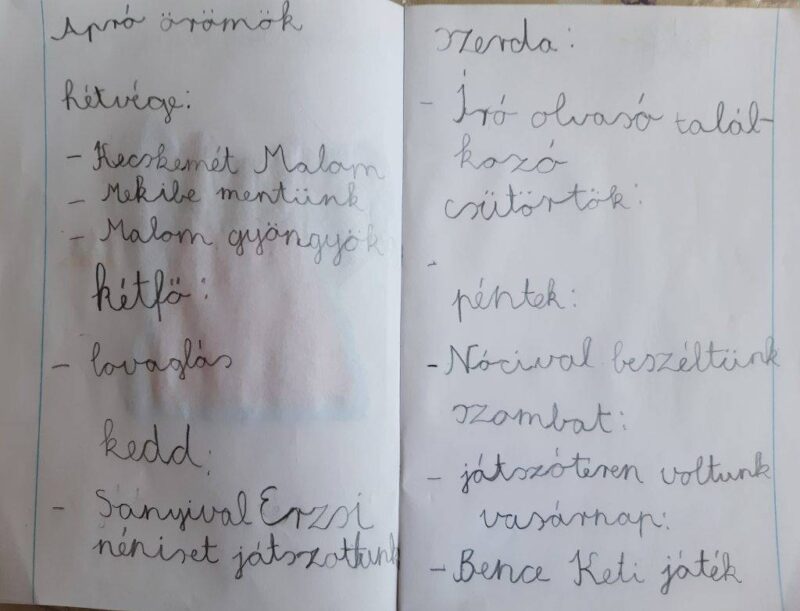 Apró örömök
hétvége:
- Kecskemét Malom
- Mekibe mentünk
- Malom gyöngyök
hétfő:
- lovaglás
kedd:
- Sanyival Erzsi
néniset játszottunk
szerda:
- Író olvasó talál-
kozó
csütörtök:
-
péntek:
- Nócival beszéltünk
szombat:
- játszóteren voltunk
vasárnap:
- Bence Keti játék